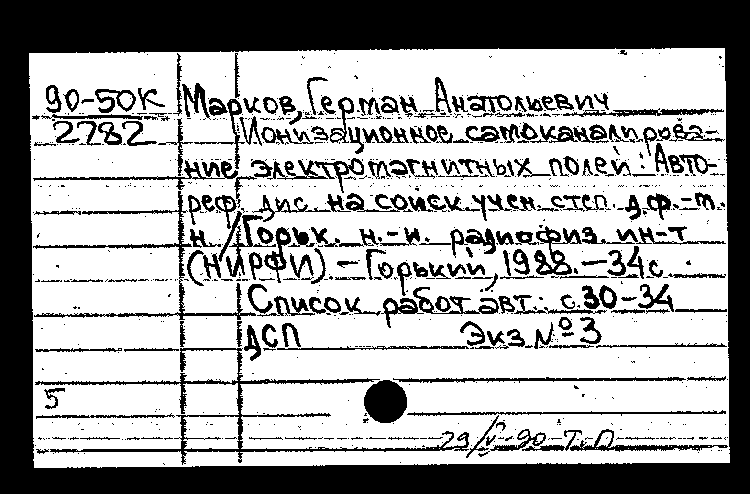 90-50К Марков, Герман Анатольевич
2782 Ионизационное самоканалирова-
ние электромагнитных полей: Авто-
реф. дис. на соиск. учен. степ. д.ф.-м.
н. / Горьк. н.-и. радиофиз. ин-т
(НИРФИ). - Горький, 1988. - 34 с.
Список работ авт.: с. 30-34
ДСП Экз № 3
5
29/V-90 Т.П